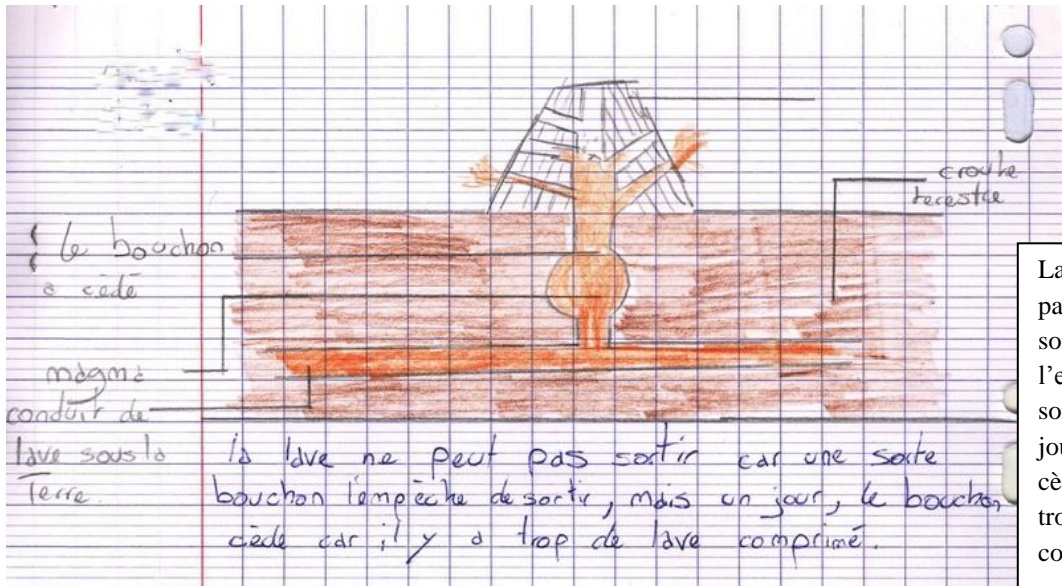 croute
terestre
le bouchon
a cèdé
magma
conduit de
lave sous la
Terre.
la lave ne peut pas sortir car une sorte
bouchon l'empèche de sortir, mais un jour, le bouchon
cède car il y a trop de lave comprimé.
La
pa
so
l'e
so
jou
cè
tro
co